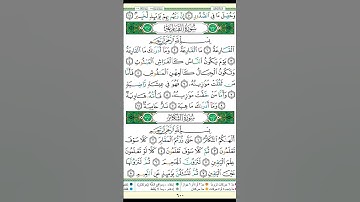 وَحُصِّلَ مَا فِي ٱلصُّدُورِ ١٠ إِنَّ رَبَّهُم بِهِمْ يَوْمَئِذٍ لَّخَبِيرٌ ١١
سُورَةُ القَارِعَةِ
بِسْمِ ٱللَّهِ ٱلرَّحْمَٰنِ ٱلرَّحِيمِ
ٱلْقَارِعَةُ ١ مَا ٱلْقَارِعَةُ ٢ وَمَآ أَدْرَىٰكَ مَا ٱلْقَارِعَةُ ٣
يَوْمَ يَكُونُ ٱلنَّاسُ كَٱلْفَرَاشِ ٱلْمَبْثُوثِ ٤
وَتَكُونُ ٱلْجِبَالُ كَٱلْعِهْنِ ٱلْمَنفُوشِ ٥ فَأَمَّا
مَن ثَقُلَتْ مَوَٰزِينُهُۥ ٦ فَهُوَ فِي عِيشَةٍ رَّاضِيَةٍ ٧
وَأَمَّا مَنْ خَفَّتْ مَوَٰزِينُهُۥ ٨ فَأُمُّهُۥ هَاوِيَةٌ ٩
وَمَآ أَدْرَىٰكَ مَا هِيَهْ ١٠ نَارٌ حَامِيَةٌۢ ١١
سُورَةُ التَّكَاثُرِ
بِسْمِ ٱللَّهِ ٱلرَّحْمَٰنِ ٱلرَّحِيمِ
أَلْهَىٰكُمُ ٱلتَّكَاثُرُ ١ حَتَّىٰ زُرْتُمُ ٱلْمَقَابِرَ ٢ كَلَّا سَوْفَ
تَعْلَمُونَ ٣ ثُمَّ كَلَّا سَوْفَ تَعْلَمُونَ ٤ كَلَّا لَوْ تَعْلَمُونَ
عِلْمَ ٱلْيَقِينِ ٥ لَتَرَوُنَّ ٱلْجَحِيمَ ٦ ثُمَّ لَتَرَوُنَّهَا
عَيْنَ ٱلْيَقِينِ ٧ ثُمَّ لَتُسْـَٔلُنَّ يَوْمَئِذٍ عَنِ ٱلنَّعِيمِ ٨
٦٠٠